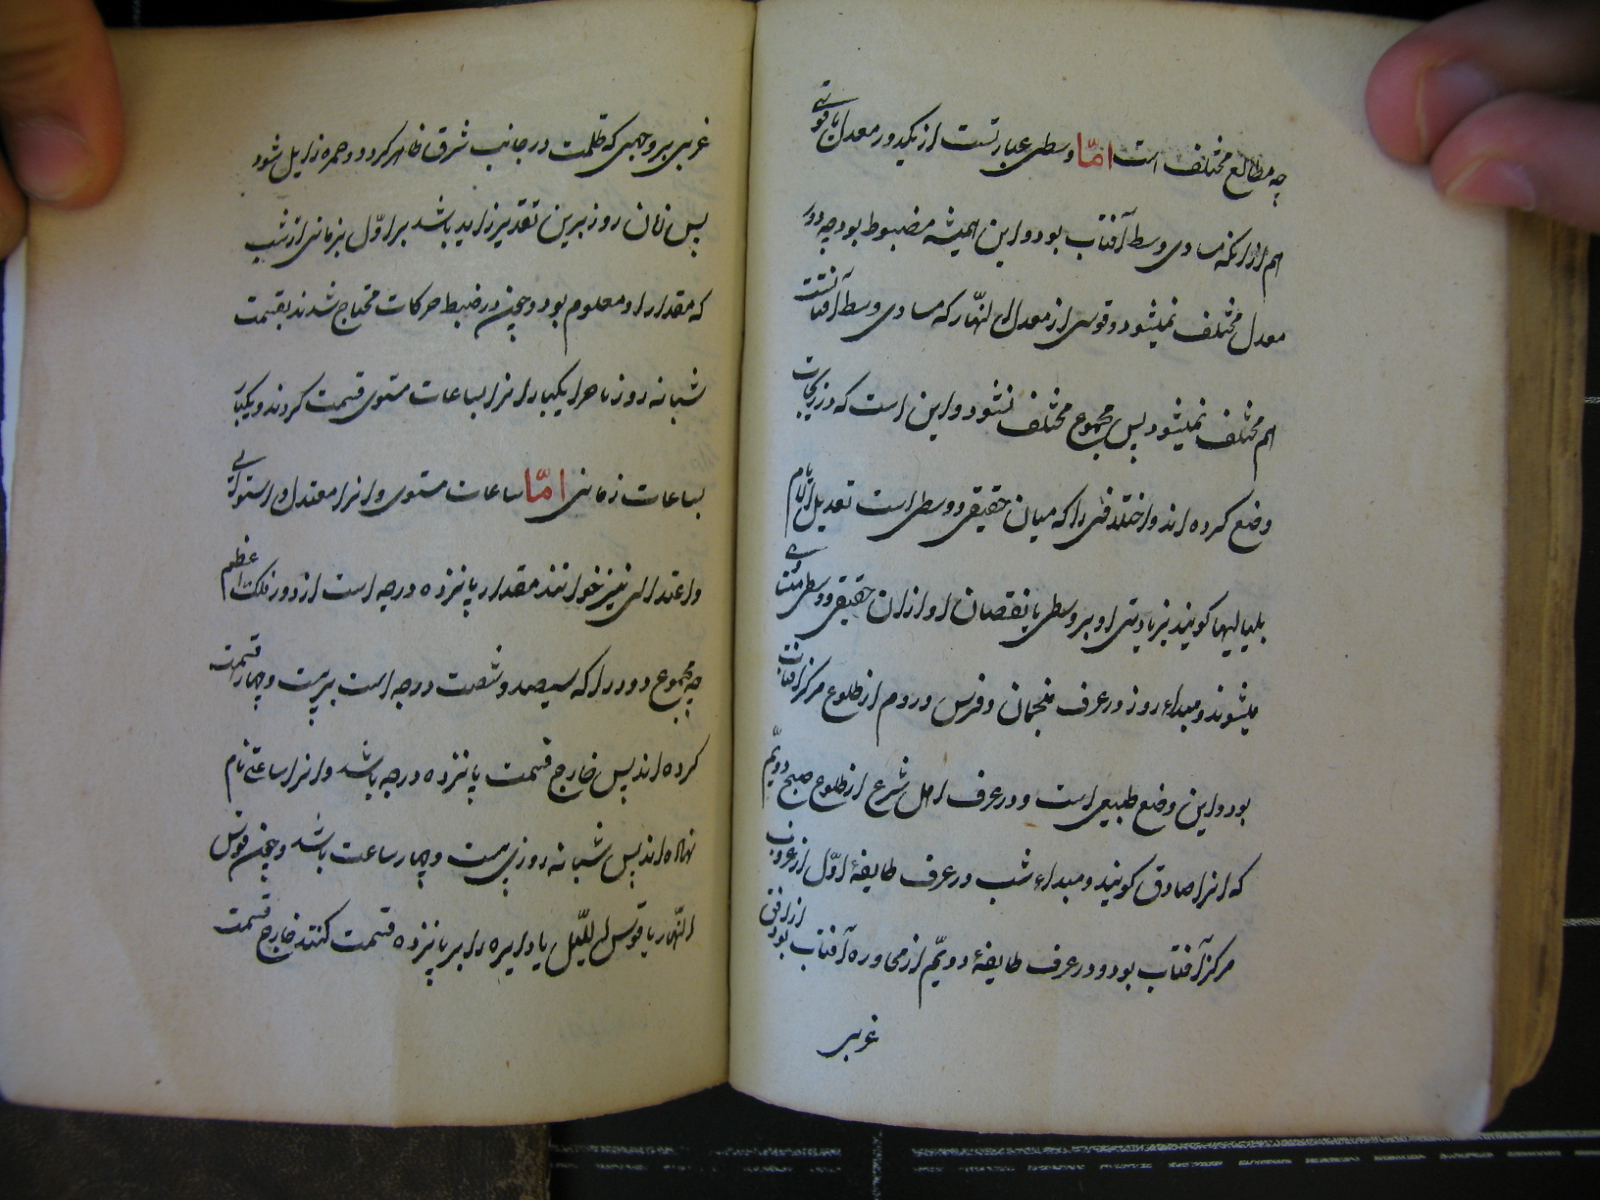 چه مطالع مختلف است امّا وسطی عبارتست از یکدور معدل با قوسی
هم از آنکه مساوی وسط آفتاب بود و این همیشه مضبوط بود چه دور
معدل مختلف نمیشود و قوسی از معدل النهار که مساوی وسط آفتابست
هم مختلف نمیشود پس مجموع مختلف نشود و این است که در زیجات
وضع کرده اند و اختلافی را که میان حقیقی و وسطی است تعدیل الایام
بلیالیها کویند بزیادتی او بر وسطی یا نقصان او ازان حقیقی و وسطی متساوی
میشوند و مبداء روز در عرف منجمان و فرس و روم از طلوع مرکز آفتاب
بود و این وضع طبیعی است و در عرف اهل شرع از طلوع صبح دویّم
که انرا صادق کویند و مبداء شب در عرف طایفهٔ اوّل از غروب
مرکز آفتاب بود و در عرف طایفهٔ دویّم از مجاوره آفتاب بود از افق
غربی
غربی بر وجهی که ظلمت در جانب شرق ظاهر کردد و حمره زایل شود
پس زمان روز برین تقدیر زاید باشد بر اوّل بزمانی از شب
که مقدار او معلوم بود و چون در ضبط حرکات محتاج شدند بقسمت
شبانه روز ناهر ایکبار انرا بساعات مستوی قسمت کردند و یکبار
بساعات زمانی امّا ساعات مستوی و انرا معتدل و استوایی
و اعتدالی نیز خوانند مقدار پانزده درجه است از دور فلک اعظم
چه مجموع دور را که سیصد و شصت درجه است بر بیست و چهار قسمت
کرده اند پس خارج قسمت پانزده درجه باشد و انرا ساعتی نام
نهاده اند پس شبانه روزی بیست و چهار ساعت باشد و چون قوس
النّهار یا قوس اللّیل یا دایره را بر پانزده قسمت کنند خارج قسمت